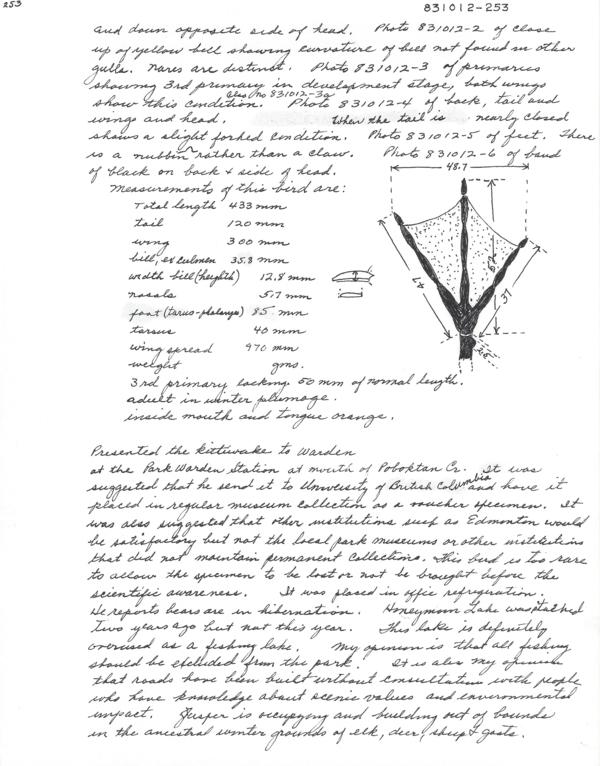 253
831012-253
and down opposite side of head. Photo 831012-2 of close
up of yellow bill showing curvature of bill not found in other
gulls. nares are distinct. Photo 831012-3 of primaries
showing 3rd primary in development stage, both wings
also no 831012-3a
show this condition. Photo 831012-4 of back, tail and
wings and head. When the tail is nearly closed
shows a slight forked condition. Photo 831012-5 of feet. There
is a nubbin rather than a claw. Photo 831012-6 of band
of black on back & side of head.
48.7
measurements of this bird are:
Total length 433 mm
tail 120 mm
wing 300 mm
bill, ex culmen 35.8 mm
width bill (heighth) 12.8 mm
nasals 5.7 mm
foot (tarus-phalanges) 85 mm
tarsus 40 mm
wing spread 970 mm
weight gms.
47
37
3rd primary lacking 50 mm of normal length.
adult in winter plumage.
inside mouth and tongue orange.
Presented the kittiwake to Warden
at the Park Warden Station at mouth of Poboktan Cr. It was
suggested that he send it to University of British Columbia and have it
placed in regular museum collection as a voucher specimen. It
was also suggested that other institutions such as Edmonton would
be satisfactory but not the local park museums or other institutions
that did not maintain permanent collections. This bird is too rare
to allow the specimen to be lost or not be brought before the
scientific awareness. It was placed in office refrigeration.
He reports bears are in hibernation. Honeymoon Lake was stocked
two years ago but not this year. This lake is definitely
overused as a fishing lake. My opinion is that all fishing
should be excluded from the park. It is also my opinion
that roads have been built without consultation with people
who have knowledge about scenic values and environmental
impact. Jasper is occupying and building out of bounds
in the ancestral winter grounds of elk, deer, sheep & goats.